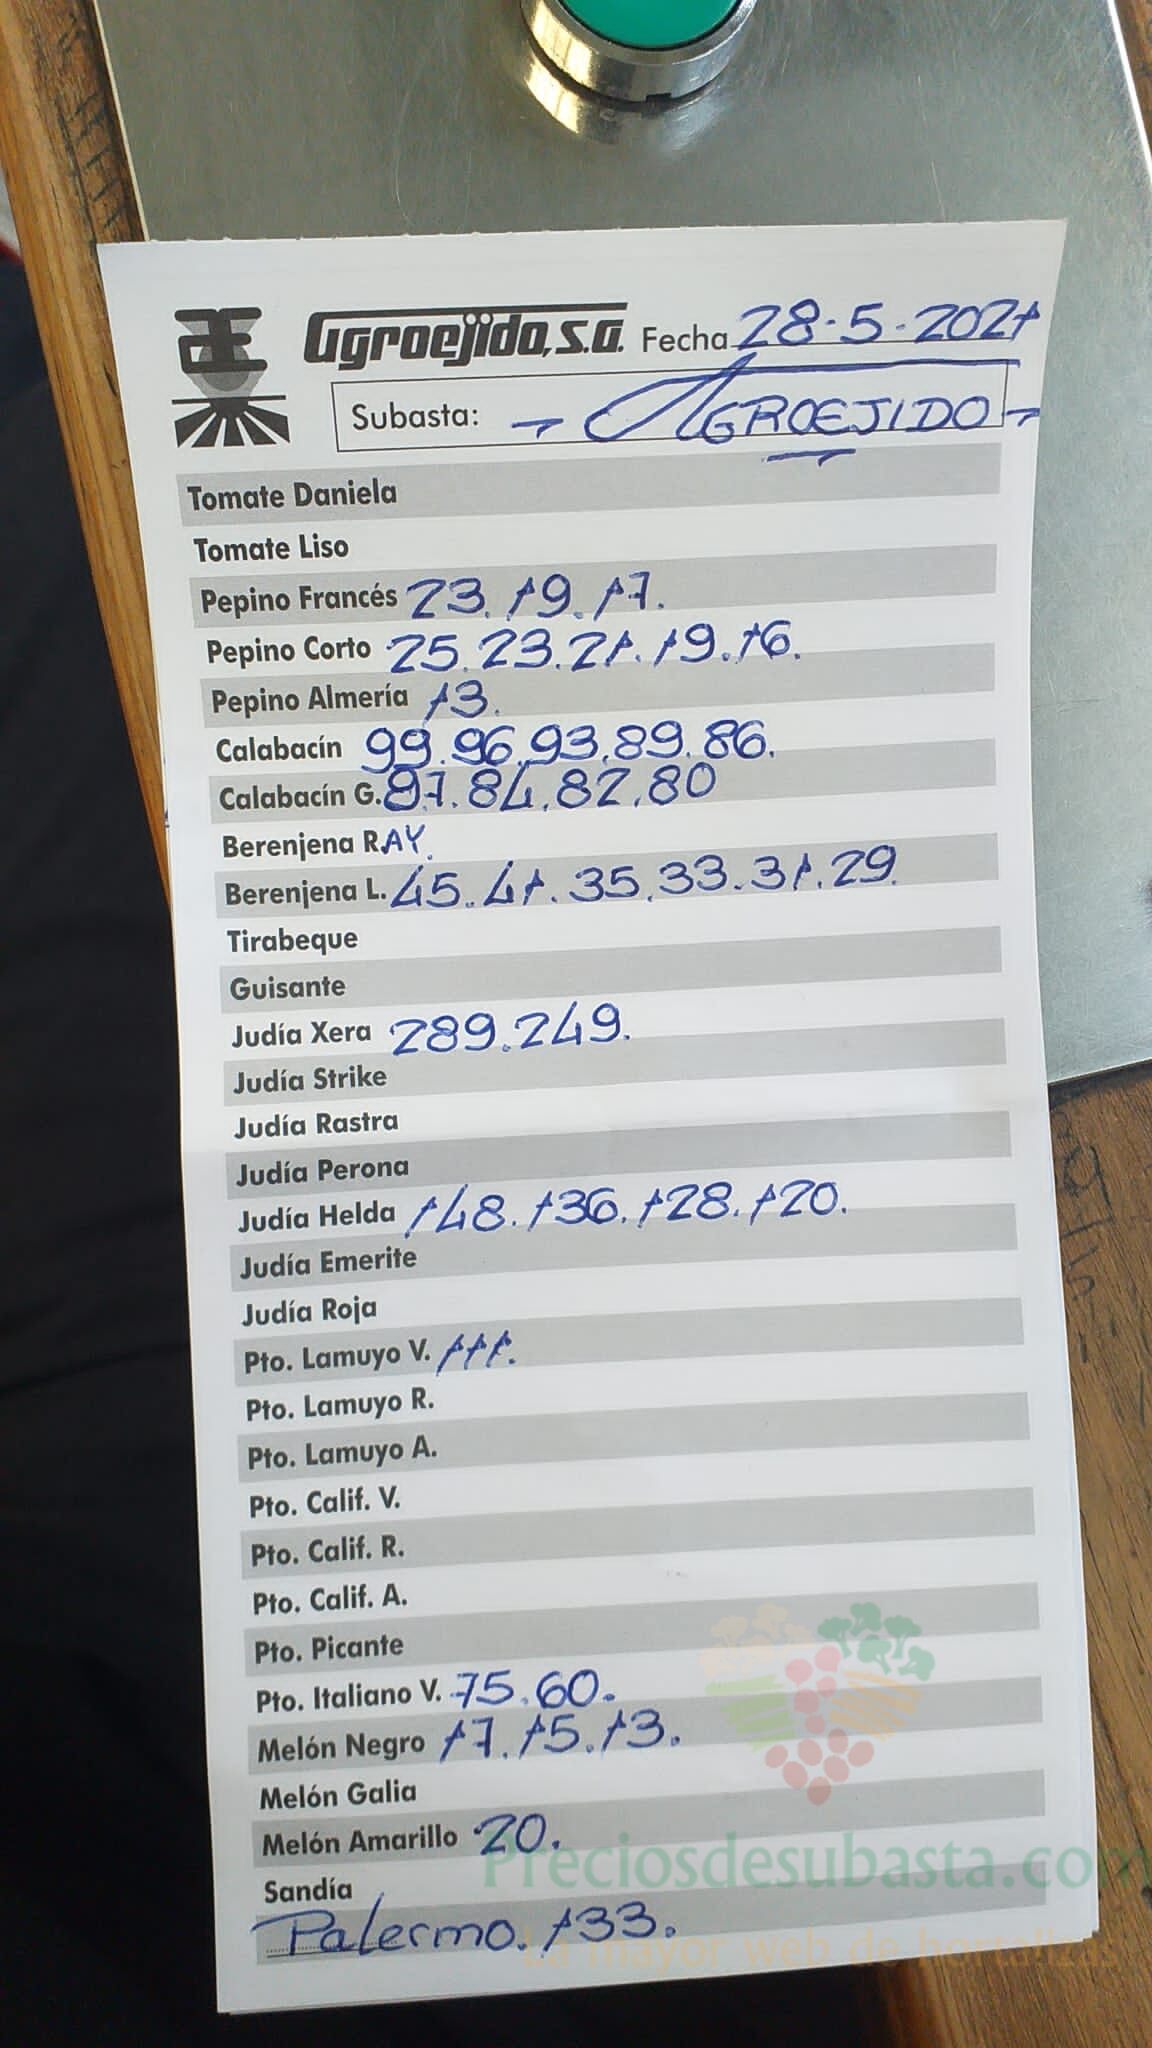 Agroejido, S.A. Fecha 28.5.2021
Subasta: - AGROEJIDO -
Tomate Daniela
Tomate Liso
Pepino Francés 23. 19. 17.
Pepino Corto 25. 23. 21. 19. 16.
Pepino Almería 13.
Calabacín 99. 96. 93. 89. 86.
Calabacín G. 87. 84. 82. 80
Berenjena RAY.
Berenjena L. 45. 41. 35. 33. 31. 29.
Tirabeque
Guisante
Judía Xera 289. 249.
Judía Strike
Judía Rastra
Judía Perona
Judía Helda 148. 136. 128. 120.
Judía Emerite
Judía Roja
Pto. Lamuyo V. 111.
Pto. Lamuyo R.
Pto. Lamuyo A.
Pto. Calif. V.
Pto. Calif. R.
Pto. Calif. A.
Pto. Picante
Pto. Italiano V. 75. 60.
Melón Negro 17. 15. 13.
Melón Galia
Melón Amarillo 20.
Preciosdesubasta.com
Sandía
Palermo. 133.
La mayor web de hortalizas